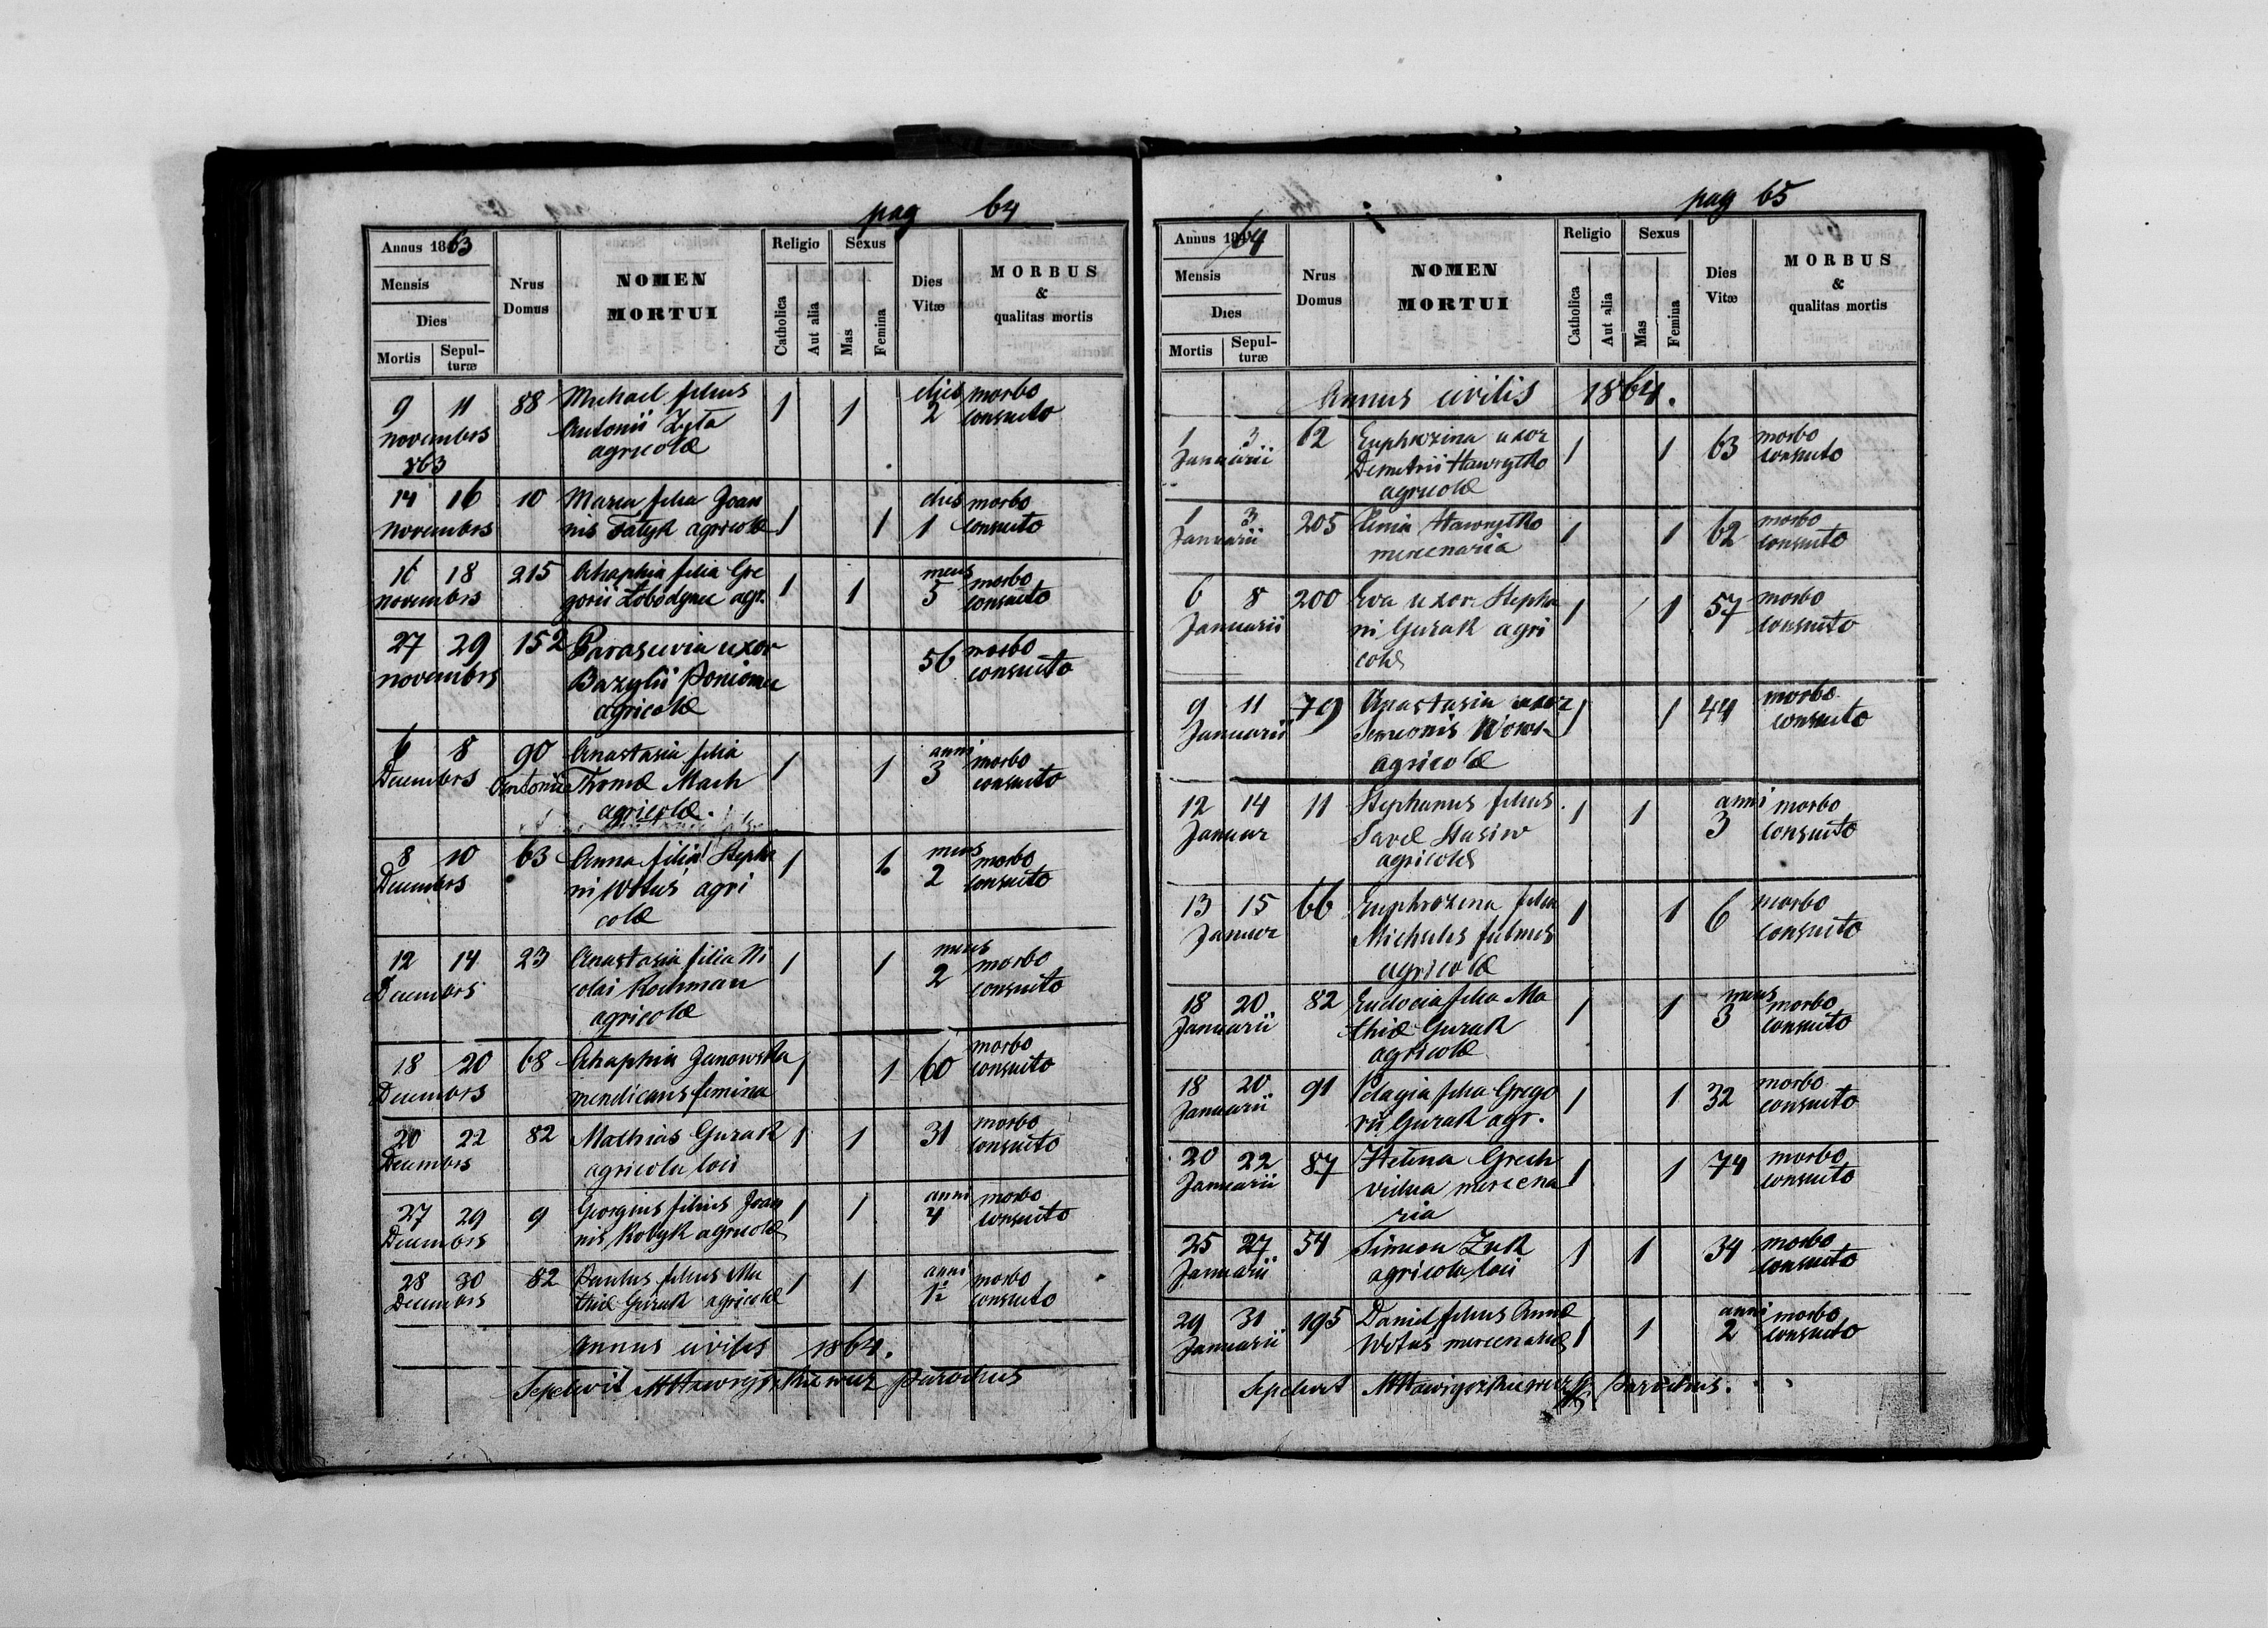 pag 64
Annus 1863
Mensis
Dies
Mortis
Sepulturæ
Nrus Domus
NOMEN MORTUI
Religio
Catholica
Aut alia
Sexus
Mas
Femina
Dies Vitæ
MORBUS & qualitas mortis
9 11 88 Michael filius 1 1 dies morbo
novembrs Antonii Zyta 2 consueto
863 agricolæ
14 16 10 Maria filia Joan 1 1 dies morbo
novembrs nis agricolæ 1 consueto
16 18 215 Ahaphia filia Gre 1 1 mens morbo
novembrs gorii Łobodynec agr. 5 consueto
27 29 152 Parascevia uxor 56 morbo
novembrs Bazylii consueto
agricolæ
6 8 90 Anastasia filia 1 1 anni morbo
Decembrs Antonii Thomæ Mach 3 consueto
agricolæ.
8 10 63 Anna filia Stepha 1 1 mens morbo
Decembrs ni Witus agri 2 consueto
colæ
12 14 23 Anastasia filia Ni 1 1 mens morbo
Decembrs colai Rochman 2 consueto
agricolæ
18 20 68 Ahaphia Janowska 1 1 60 morbo
Decembrs mendicans femina consueto
20 22 82 Mathias Gurak 1 1 31 morbo
Decembrs agricola loci consueto
27 29 9 Georgius filius Joan 1 1 anni morbo
Decembrs nis Kobyk agricolæ 4 consueto
28 30 82 Paulus filius Ma 1 1 anni morbo
Decembrs thiæ Gurak agricolæ 1½ consueto
Annus civilis 1864.
Sepelivit parochus
pag 65
Annus 1864
Mensis
Dies
Mortis
Sepulturæ
Nrus Domus
NOMEN MORTUI
Religio
Catholica
Aut alia
Sexus
Mas
Femina
Dies Vitæ
MORBUS & qualitas mortis
Annus civilis 1864.
1 3 62 Euphrozina uxor 1 1 63 morbo
Januarii Demetrii Hawrytko consueto
agricolæ
1 3 205 Xenia Hawrytko 1 1 62 morbo
Januarii mercenaria consueto
6 8 200 Eva uxor Stepha 1 1 57 morbo
Januarii ni Gurak agri consueto
colæ
9 11 79 Anastasia uxor 1 1 44 morbo
Januarii Simeonis consueto
agricolæ
12 14 11 Stephanus filius 1 1 anni morbo
Januar Stasiw 3 consueto
agricolæ
13 15 66 Euphrozena filia 1 1 6 morbo
Januar Michaelis consueto
agricolæ
18 20 82 Eudocia filia Ma 1 1 mens morbo
Januarii thiæ Gurak 3 consueto
agricolæ
18 20 91 Pelagia filia Grego 1 1 32 morbo
Januarii rii Gurak agr. consueto
20 22 87 Helena Grech 1 1 74 morbo
Januarii vidua mercena consueto
ria
25 27 54 Simeon Zuk 1 1 34 morbo
Januarii agricola loci consueto
29 31 195 Daniel filius Annæ 1 1 anni morbo
Januarii Witus mercenariæ 2 consueto
Sepelivit parochus.